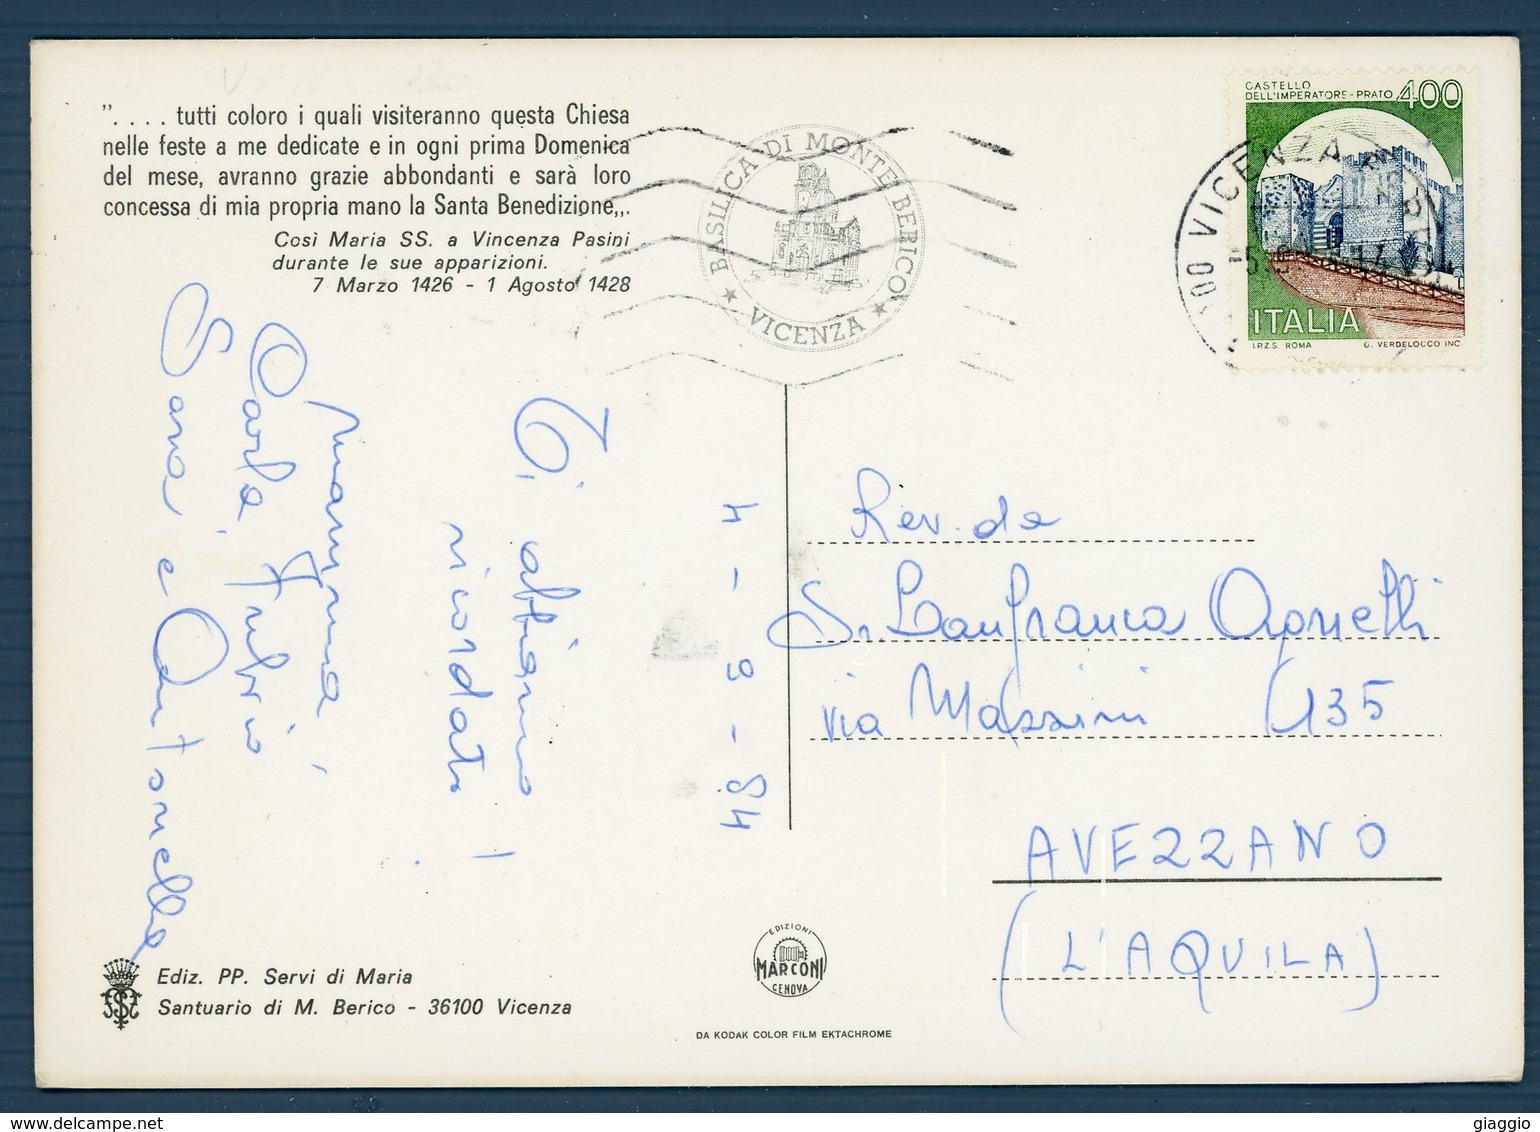 "....tutti coloro i quali visiteranno questa Chiesa
nelle feste a me dedicate e in ogni prima Domenica
del mese, avranno grazie abbondanti e sarà loro
concessa di mia propria mano la Santa Benedizione„.
Così Maria SS. a Vincenza Pasini
durante le sue apparizioni.
7 Marzo 1426 - 1 Agosto 1428
BASILICA DI MONTE BERICO
★ VICENZA ★
CASTELLO
DELL'IMPERATORE-PRATO 400
ITALIA
I.P.Z.S. ROMA G. VERDELOCCO INC.
VICENZA
4-9-84
Ti abbiamo
ricordato!
mamma,
Carla, Fulvio
Sara e Antonella
Rev.da
Sr Lanfranca Agnelli
via Massini 135
AVEZZANO
(L'AQUILA)
Ediz. PP. Servi di Maria
Santuario di M. Berico - 36100 Vicenza
EDIZIONI
MARCONI
GENOVA
DA KODAK COLOR FILM EKTACHROME
giaggio